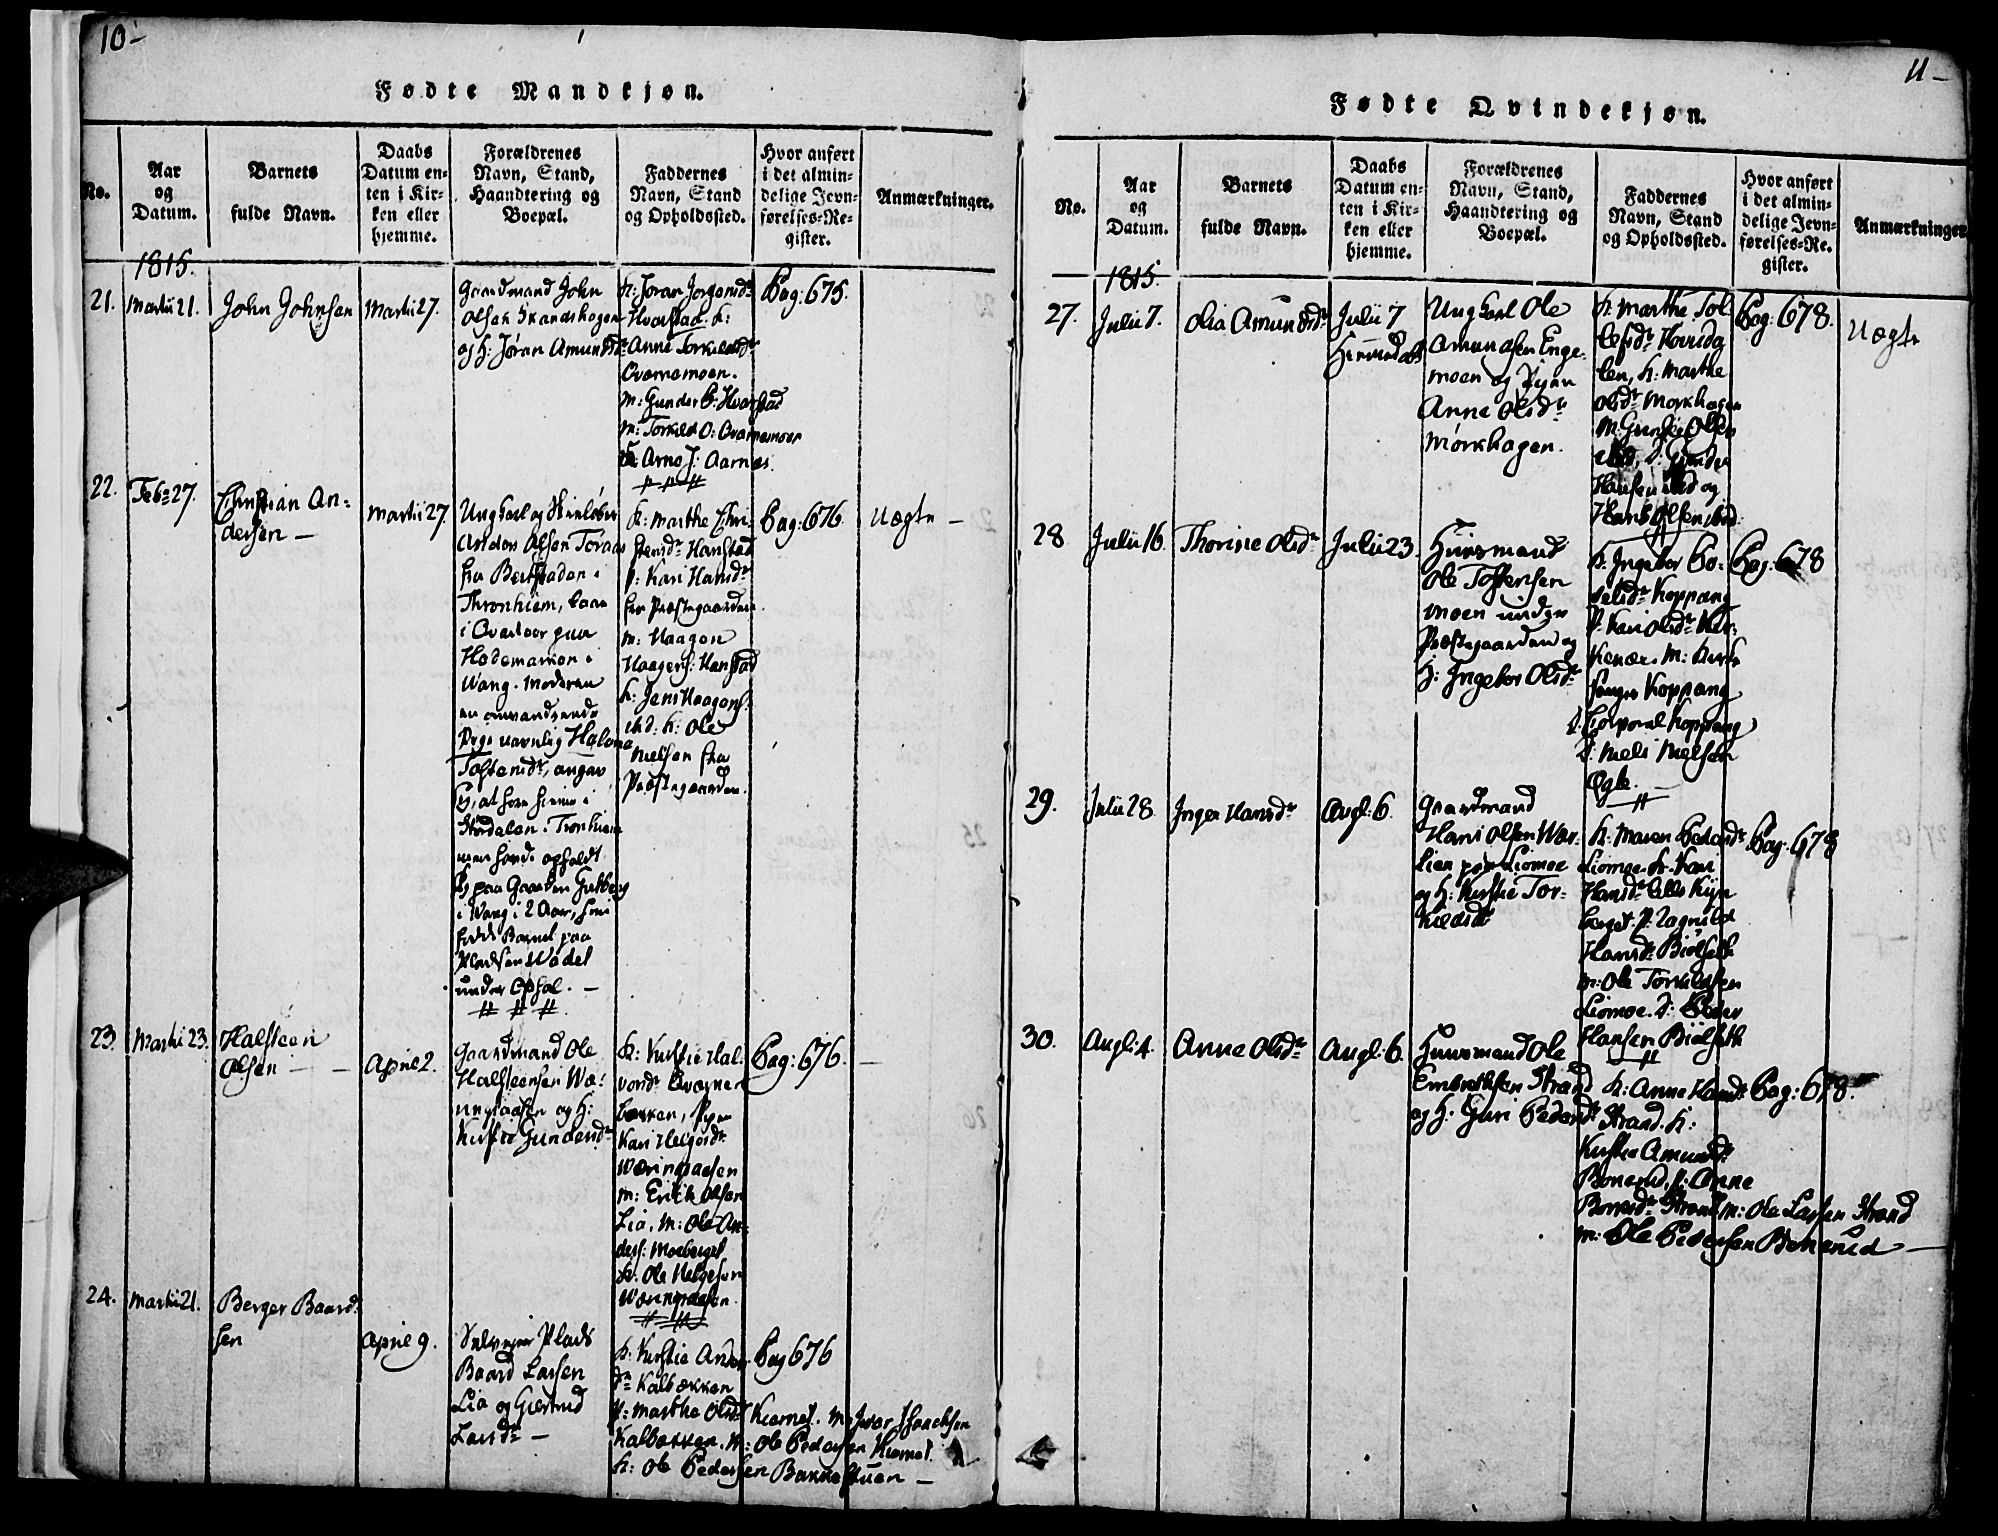 10-
Fødte Mandkjøn.
No.
Aar
og
Datum.
Barnets
fulde Navn.
Daabs
Datum en-
ten i Kir-
ken eller
hjemme.
Forældrenes
Navn, Stand,
Haandtering og
Boepæl.
Faddernes
Navn, Stand
og Opholdssted.
Hvor anført
i det almin-
delige Jevn-
førelses-Re-
gister.
Anmærkninger.
1815.
21.
Martii 21.
John Johnsen
Martii 27.
Gaardmand John
Olsen Skandshagen
og H: Jøran Amundsdr
K: Jøran Jørgensdr
Hvarstad. K:
Anne Torkeldsdr
Ovarnemoen.
M: Gunder B: Hvarstad
M: Torkild O:
K: Arne J: Aarnæs.
Pag: 675.
22.
Feb: 27.
Christian An-
dersen —
Martii 27.
Ungkarl og
Anders Olsen
fra
Thronhiem,
i
Hedemarken i
Wang. Moderen
Pige navnlig
Tostensdr, angav
Størdalen i Tronhiem
paa Gaarden
i Wang i 2 Aar,
fødde Barnet paa
Pladsen Wadel
under Ophol. —
K: Marthe Chri-
stensdr Hanstad
P: Kari Hansdr
fra Præstegaarden.
M: Haagen
Haagens: Hanstad
K: Jens Haagens:
ibd. K: Ole
Nielsen fra
Præstegaarden.
Pag: 676.
Uægte —
23.
Martii 23.
Halsteen
Olsen —
April 2.
Gaardmand Ole
Halsteensen Wæ-
ringsaasen og H:
Kirstie Gundersdr
K: Kirstie Hal-
vorsdr
bakken, Pige
Kari Helgesdr
Wæringsaasen
M: Erik Olsen
Lia. M: Ole An-
ders: Moeberget
K: Ole Helgesen
Wæringsaasen.
Pag: 676.
—
24.
Martii 21.
Berger Baard-
sen
April 9.
Selveier Plads
Baard Larsen
Lia og Giertrud
Larsdr —
K: Kirstie Anders-
dr Kalbækken
P: Marthe Olsdr Kiernet. M: Iver Isachsen
Kalbækken. M: Ole Pedersen Kiernet.
K: Ole Pedersen Bakkestuen —
Pag 676
11-
Fødte Qvindekjøn.
No.
Aar
og
Datum.
Barnets
fulde Navn.
Daabs
Datum en-
ten i Kir-
ken eller
hjemme.
Forældrenes
Navn, Stand,
Haandtering og
Boepæl.
Faddernes
Navn, Stand
og Opholdssted.
Hvor anført
i det almin-
delige Jevn-
førelses-Re-
gister.
Anmærkninger
1815.
27.
Julii 7.
Olia Amundsdr
Julii 7
Ungkarl Ole
Amundsen Enge-
moen og Pigen
Anne Olsdr
Mørkhagen.
K: Marthe Tol-
lefsdr Hovrda-
len, K: Marthe
Olsdr Mørkhagen
M:
Hansen ibd og
Hans Olsen ibd.
Pag: 678.
Uægte
28
Julii 16.
Thorine Olsdr
Julii 23.
Huusmand
Ole Tostensen
Moen under
Præstegaarden og
H: Ingebor Olsdr
K: Ingebor Bo-
Koppang
P: Kari Olsdr Kir-
M: Kirke-
sanger Koppang
D: Corporal Koppang
D: Niels Nielsen
Øgle. —
Pag: 678
29.
Julii 28
Inger Hansdr
Augl: 6.
Gaardmand
Hans Olsen Wær-
lien paa Liomoe
og H: Kirstie Tor-
kildsdr
K: Maren Pedersdr
Liomoe. K: Kari
Hansdr lille Kiøn-
berget. P: Ragnild
Hansdr Biølseth
M: Ole Torkildsen
Liomoe. D: Peder
Hansen Biølseth
Pag: 678
30.
Augl: 4.
Anne Olsdr
Augl: 6.
Huusmand Ole
Embrethsen Strand
og H: Guri Pedersdr
K: Anne Hansdr
Strand. K:
Kirstie Amundsdr
Bonerud, P: Anne
Strand M: Ole Larsen Strand
M: Ole Pedersen Bonerud —
Pag: 678.